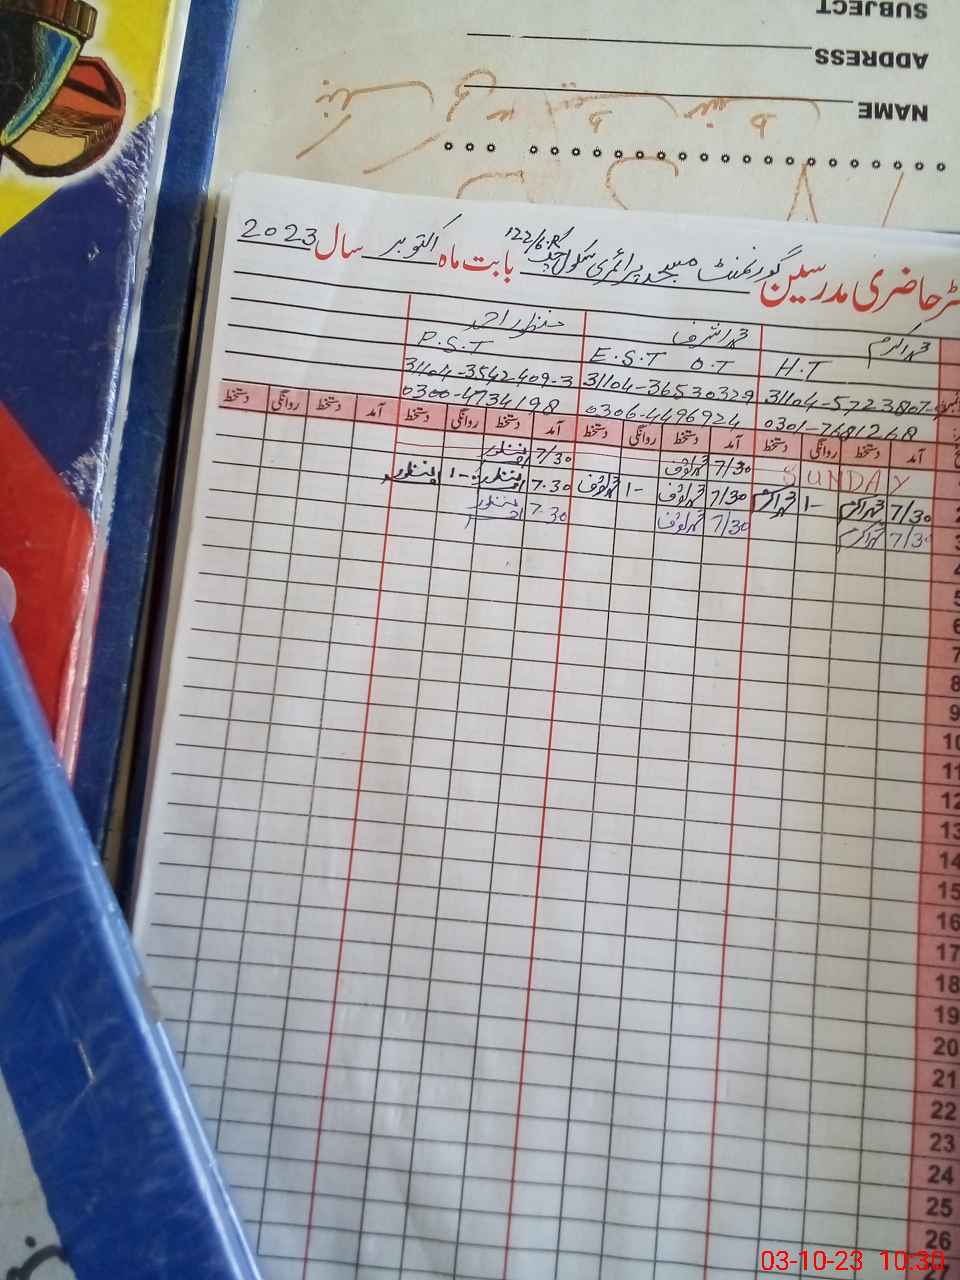 SUBJECT
ADDRESS
NAME
رجسٹر حاضری مدرسین گورنمنٹ مسجد پرائمری سکول چک 122/6.R بابت ماہ اکتوبر سال 2023
محمد اکرم محمد اشرف منظور احمد
H.T E.S.T O.T P.S.T
31104-5723807- 31104-36530329 31104-3542409-3
0301-7681268 0306-4496924 0300-4734198
آمد دستخط روانگی دستخط آمد دستخط روانگی دستخط آمد دستخط روانگی دستخط آمد دستخط روانگی دستخط
SUNDAY 7/30 محمد اشرف 7/30 منظور احمد
2 7/30 محمد اکرم 1- محمد اکرم 7/30 محمد اشرف 1- محمد اشرف 7.30 منظور احمد 1- منظور احمد
3 7/30 محمد اکرم 7/30 محمد اشرف 7.30 منظور احمد
4
5
6
7
8
9
10
11
12
13
14
15
16
17
18
19
20
21
22
23
24
25
26
03-10-23 10:30